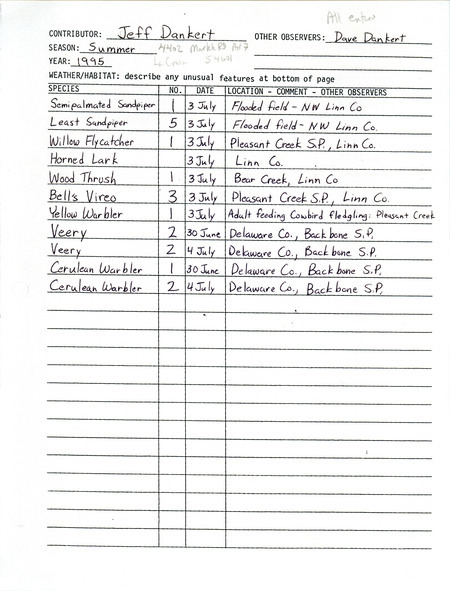 All enter
CONTRIBUTOR: Jeff Dankert OTHER OBSERVERS: Dave Dankert
SEASON: Summer 4402
YEAR: 1995
WEATHER/HABITAT: describe any unusual features at bottom of page
SPECIES NO. DATE LOCATION - COMMENT - OTHER OBSERVERS
Semipalmated Sandpiper 1 3 July Flooded field - NW Linn Co
Least Sandpiper 5 3 July Flooded field - NW Linn Co.
Willow Flycatcher 1 3 July Pleasant Creek S.P., Linn Co.
Horned Lark 3 July Linn Co.
Wood Thrush 1 3 July Bear Creek, Linn Co
Bell's Vireo 3 3 July Pleasant Creek S.P., Linn Co.
Yellow Warbler 1 3 July Adult feeding Cowbird fledgling; Pleasant Creek
Veery 2 30 June Delaware Co., Backbone S.P.
Veery 2 4 July Delaware Co., Backbone S.P.
Cerulean Warbler 1 30 June Delaware Co., Backbone S.P.
Cerulean Warbler 2 4 July Delaware Co., Backbone S.P.